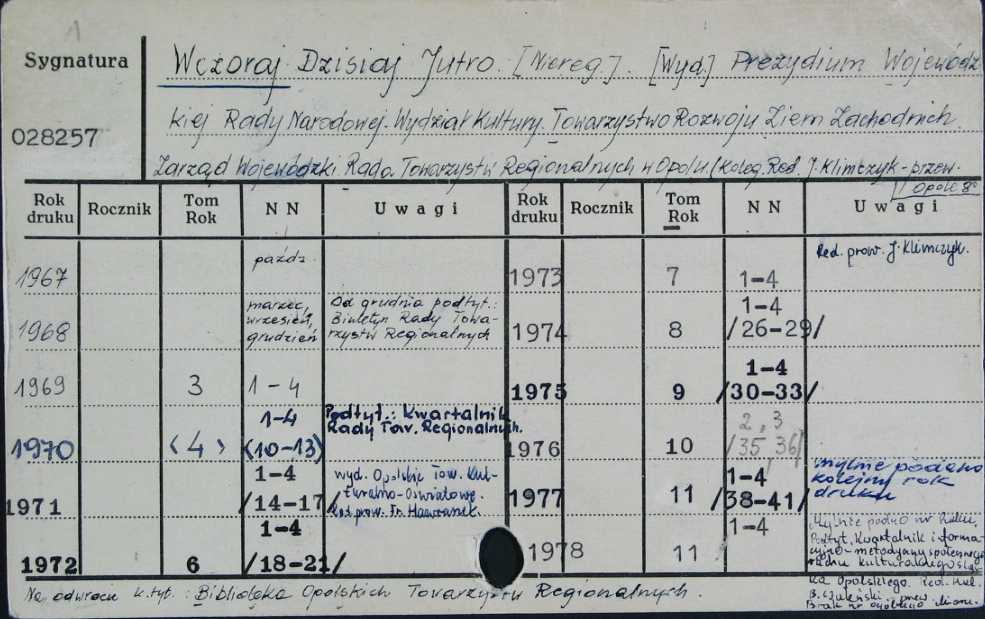 1
Sygnatura
028257
Wczoraj Dzisiaj Jutro. [Niereg.]. [Wyd.] Prezydium Wojewódz
kiej Rady Narodowej. Wydział Kultury. Towarzystwo Rozwoju Ziem Zachodnich.
Zarząd Wojewódzki. Rada Towarzystw Regionalnych w Opolu. (Koleg. Red. J. Klimczyk - przew.
Opole 8°
Rok druku Rocznik Tom Rok NN Uwagi Rok druku Rocznik Tom Rok NN Uwagi
1967 paźdz.
1968 marzec, wrzesień, grudzień Od grudnia podtyt.:
Biuletyn Rady Towa-
rzystw Regionalnych
1969 3 1-4
1970 <4> 1-4
(10-13) Podtyt.: Kwartalnik
Rady Tow. Regionalnych.
1971 1-4
/14-17/ wyd. Opolskie Tow. Kul-
turalno-Oświatowe.
Red. prow. Fr. Hawranek.
1972 6 1-4
/18-21/
1973 7 1-4 Red. prow. J. Klimczyk.
1974 8 1-4
/26-29/
1975 9 1-4
/30-33/
1976 10 2, 3
/35 36/
1977 11 1-4
/38-41/ mylnie podano
kolejny rok
druku
1978 11 1-4 Mylnie podano nr
Podtyt. Kwartalnik informa-
cyjno-metodyczny społecznego
ruchu kulturalnego Ślą-
ska Opolskiego. Red.
Brak nr
Na odwrocie k.tyt.: Biblioteka Opolskich Towarzystw Regionalnych.